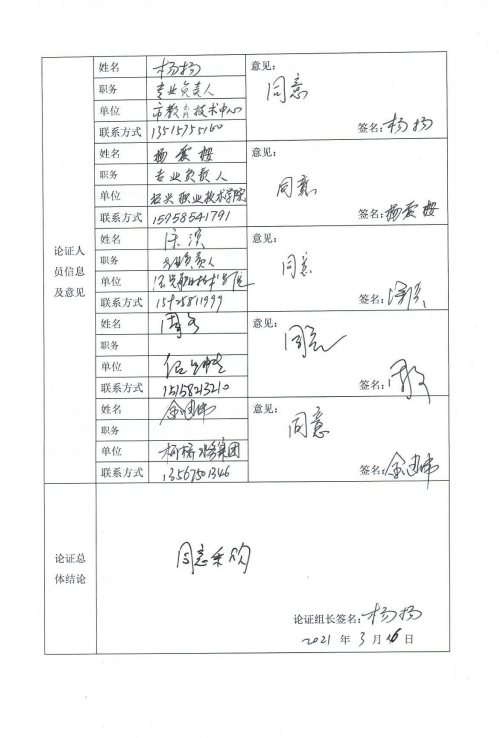 论证人
员信息
及意见
姓名 杨扬
职务 专业负责人
单位 市教育技术中心
联系方式 13515755160
意见：
同意
签名：杨扬
姓名 杨爱樱
职务 专业负责人
单位 绍兴职业技术学院
联系方式 15958541791
意见：
同意
签名：杨爱樱
姓名
职务 专业负责人
单位 绍兴职业技术学院
联系方式 15925811999
意见：
同意
签名：
姓名
职务
单位
联系方式 15158213210
意见：
同意
签名：
姓名 金建伟
职务
单位 柯桥水务集团
联系方式 13567501346
意见：
同意
签名：金建伟
论证总
体结论
同意采购
论证组长签名：杨扬
2021 年 3 月 16 日